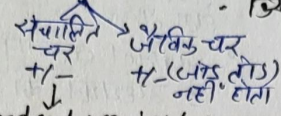 संचालित जैविक चर
चर
+/- +/- (जोड़ तोड़)
नहीं होता